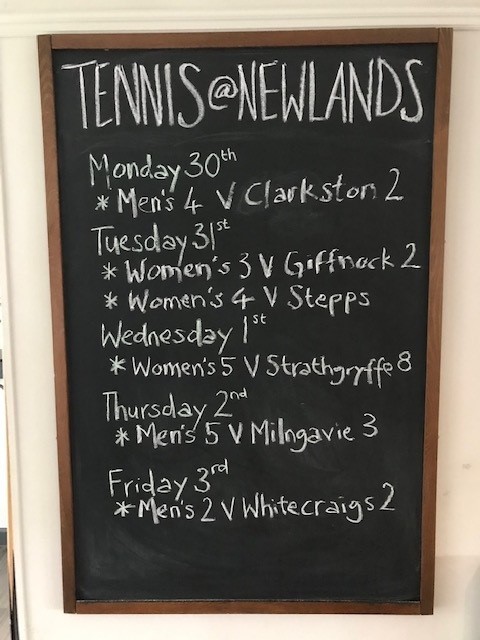 TENNIS@NEWLANDS
Monday 30th
* Men's 4 V Clarkston 2
Tuesday 31st
* Women's 3 V Giffnock 2
* Women's 4 V Stepps
Wednesday 1st
* Women's 5 V Strathgryffe 8
Thursday 2nd
* Men's 5 V Milngavie 3
Friday 3rd
* Men's 2 V Whitecraigs 2